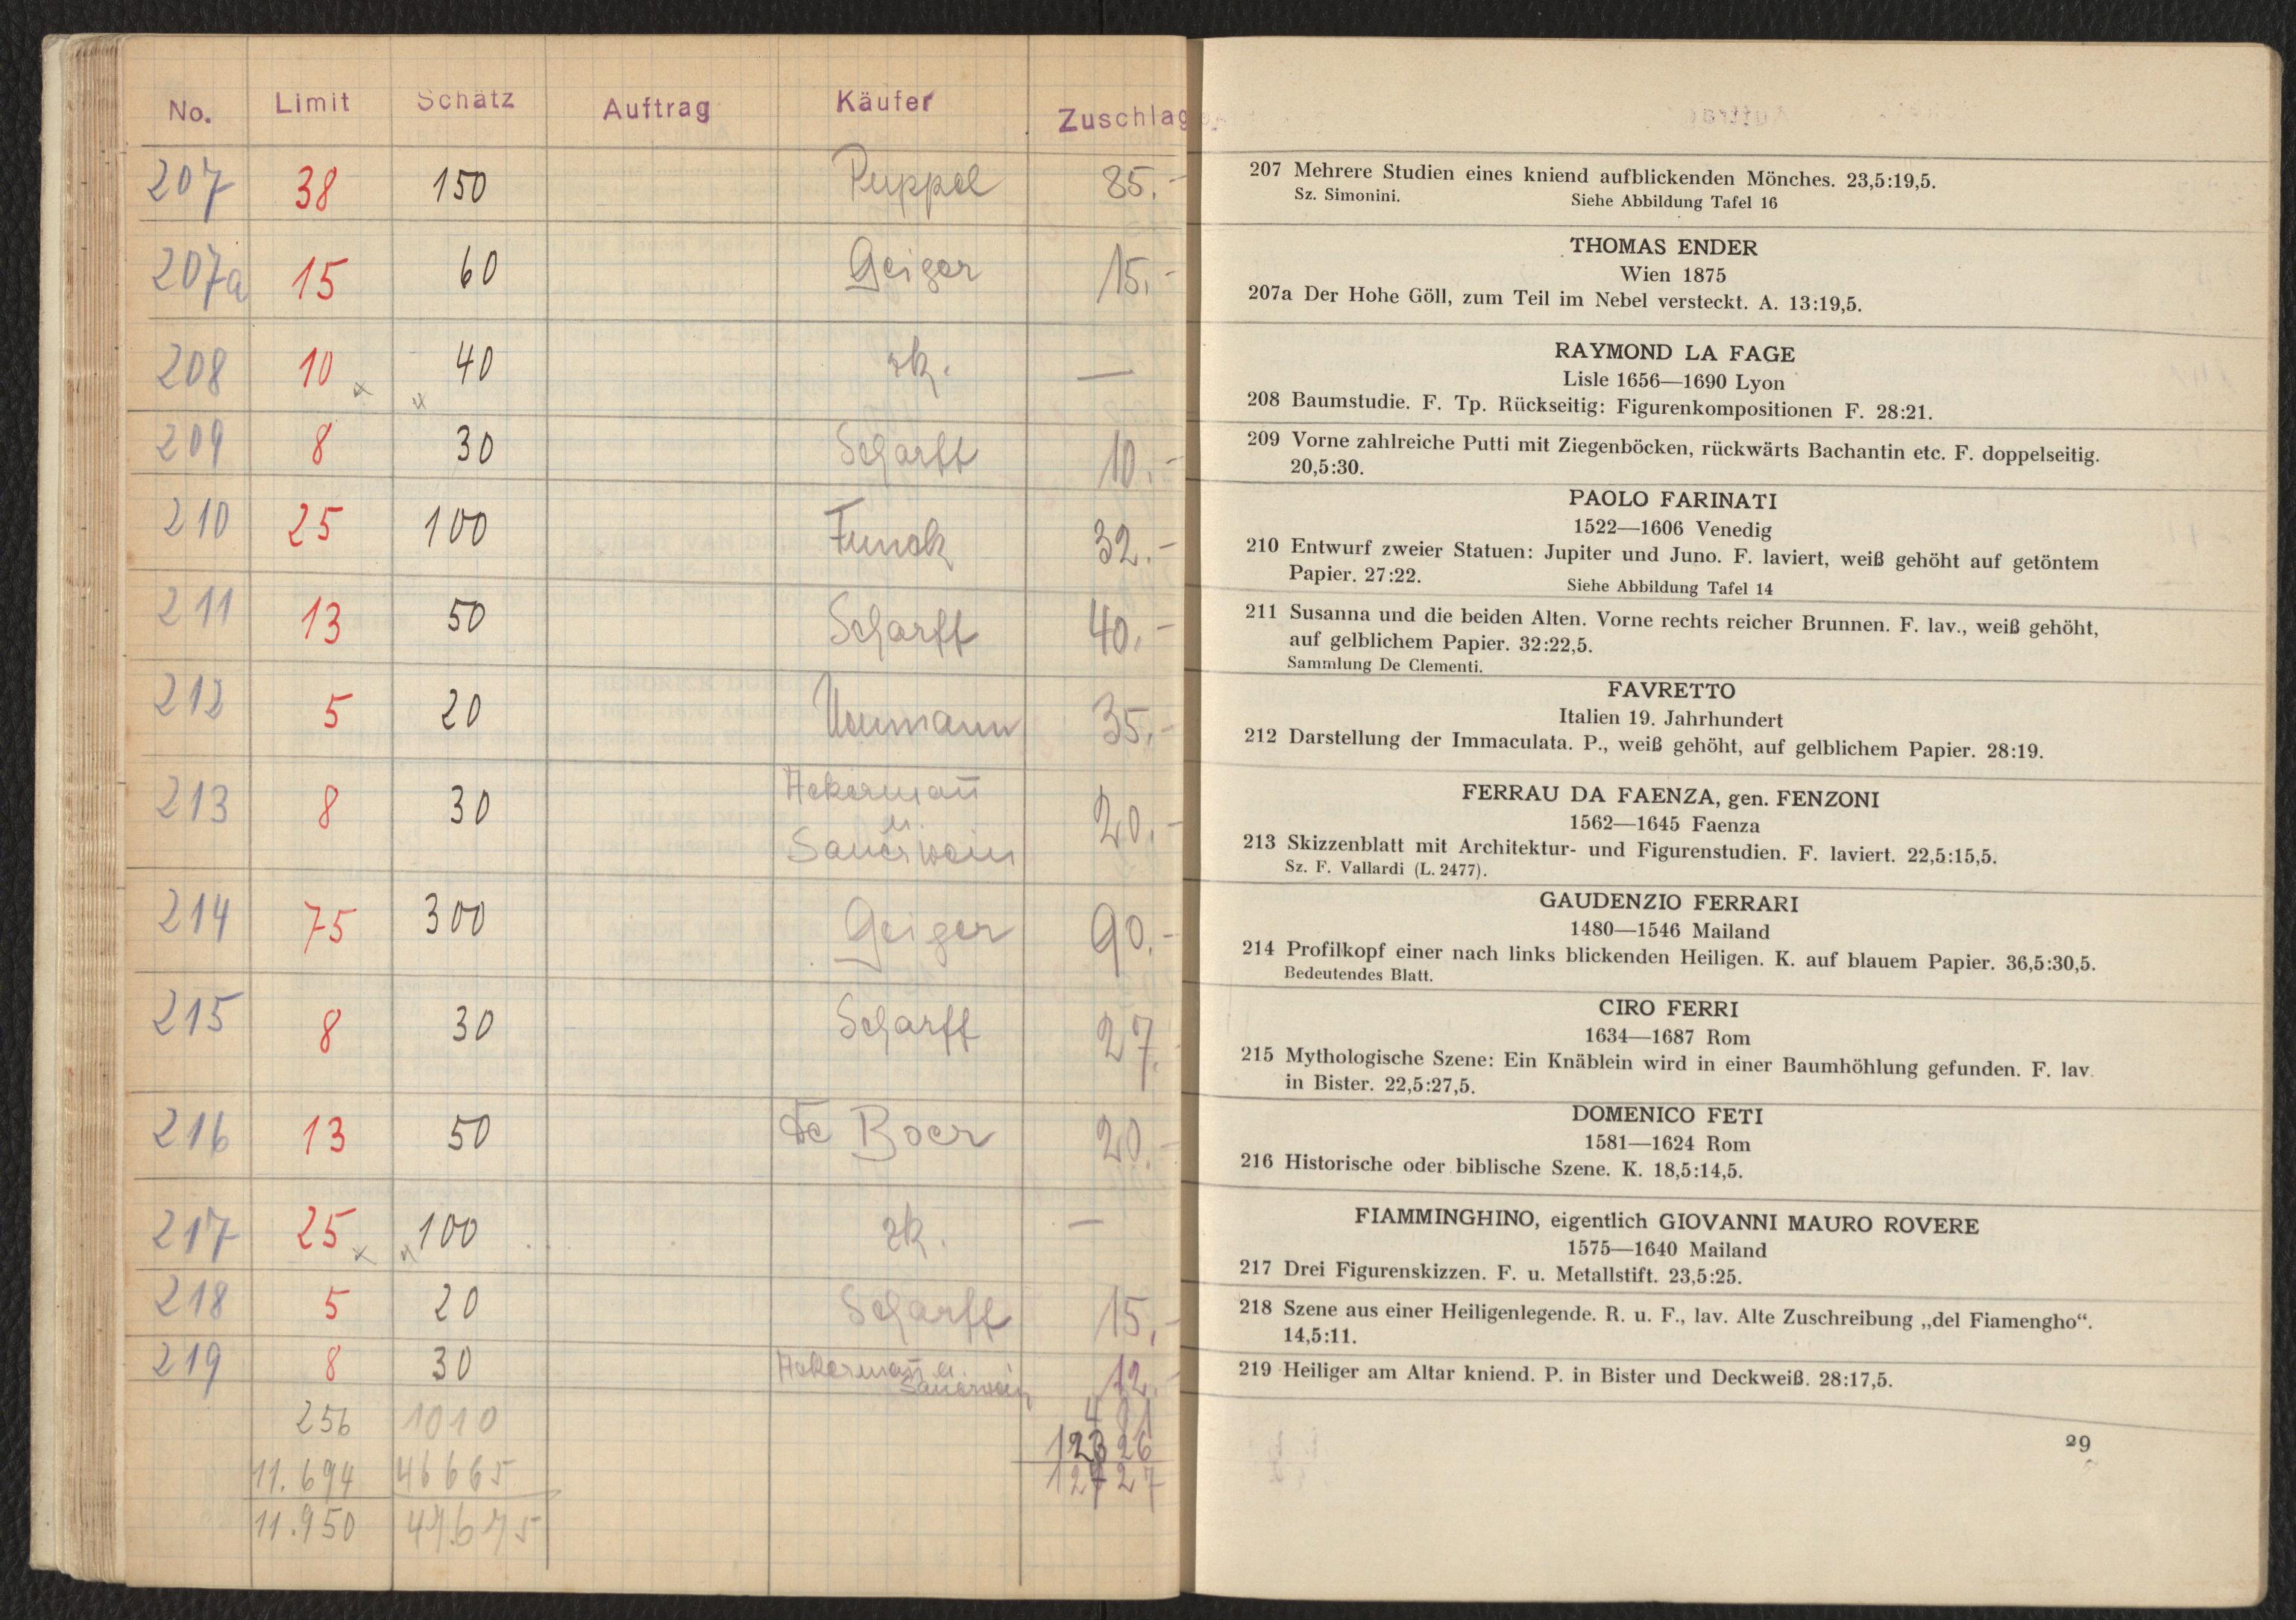 No. Limit Schätz Auftrag Käufer Zuschlag
207 38 150 Puppel 85.-
207a 15 60 Geiger 15.-
208 10 x x 40 rk. —
209 8 30 Scharff 10.-
210 25 100 Funck 32.-
211 13 50 Scharff 40.-
212 5 20 Neumann 35.-
213 8 30 Ackermañ u. Sauerwein 20.-
214 75 300 Geiger 90.-
215 8 30 Scharff 27.
216 13 50 De Boer 20.-
217 25 x x 100 rk. —
218 5 20 Scharff 15.-
219 8 30 Ackermañ u. Sauerwein 12.-
256 1010 401
11.694 46665 12326
11.950 47.675 12727
207 Mehrere Studien eines kniend aufblickenden Mönches. 23,5:19,5.
Sz. Simonini. Siehe Abbildung Tafel 16
THOMAS ENDER
Wien 1875
207a Der Hohe Göll, zum Teil im Nebel versteckt. A. 13:19,5.
RAYMOND LA FAGE
Lisle 1656—1690 Lyon
208 Baumstudie. F. Tp. Rückseitig: Figurenkompositionen F. 28:21.
209 Vorne zahlreiche Putti mit Ziegenböcken, rückwärts Bachantin etc. F. doppelseitig.
20,5:30.
PAOLO FARINATI
1522—1606 Venedig
210 Entwurf zweier Statuen: Jupiter und Juno. F. laviert, weiß gehöht auf getöntem
Papier. 27:22. Siehe Abbildung Tafel 14
211 Susanna und die beiden Alten. Vorne rechts reicher Brunnen. F. lav., weiß gehöht,
auf gelblichem Papier. 32:22,5.
Sammlung De Clementi.
FAVRETTO
Italien 19. Jahrhundert
212 Darstellung der Immaculata. P., weiß gehöht, auf gelblichem Papier. 28:19.
FERRAU DA FAENZA, gen. FENZONI
1562—1645 Faenza
213 Skizzenblatt mit Architektur- und Figurenstudien. F. laviert. 22,5:15,5.
Sz. F. Vallardi (L. 2477).
GAUDENZIO FERRARI
1480—1546 Mailand
214 Profilkopf einer nach links blickenden Heiligen. K. auf blauem Papier. 36,5:30,5.
Bedeutendes Blatt.
CIRO FERRI
1634—1687 Rom
215 Mythologische Szene: Ein Knäblein wird in einer Baumhöhlung gefunden. F. lav.
in Bister. 22,5:27,5.
DOMENICO FETI
1581—1624 Rom
216 Historische oder biblische Szene. K. 18,5:14,5.
FIAMMINGHINO, eigentlich GIOVANNI MAURO ROVERE
1575—1640 Mailand
217 Drei Figurenskizzen. F. u. Metallstift. 23,5:25.
218 Szene aus einer Heiligenlegende. R. u. F., lav. Alte Zuschreibung „del Fiamengho“.
14,5:11.
219 Heiliger am Altar kniend. P. in Bister und Deckweiß. 28:17,5.
29